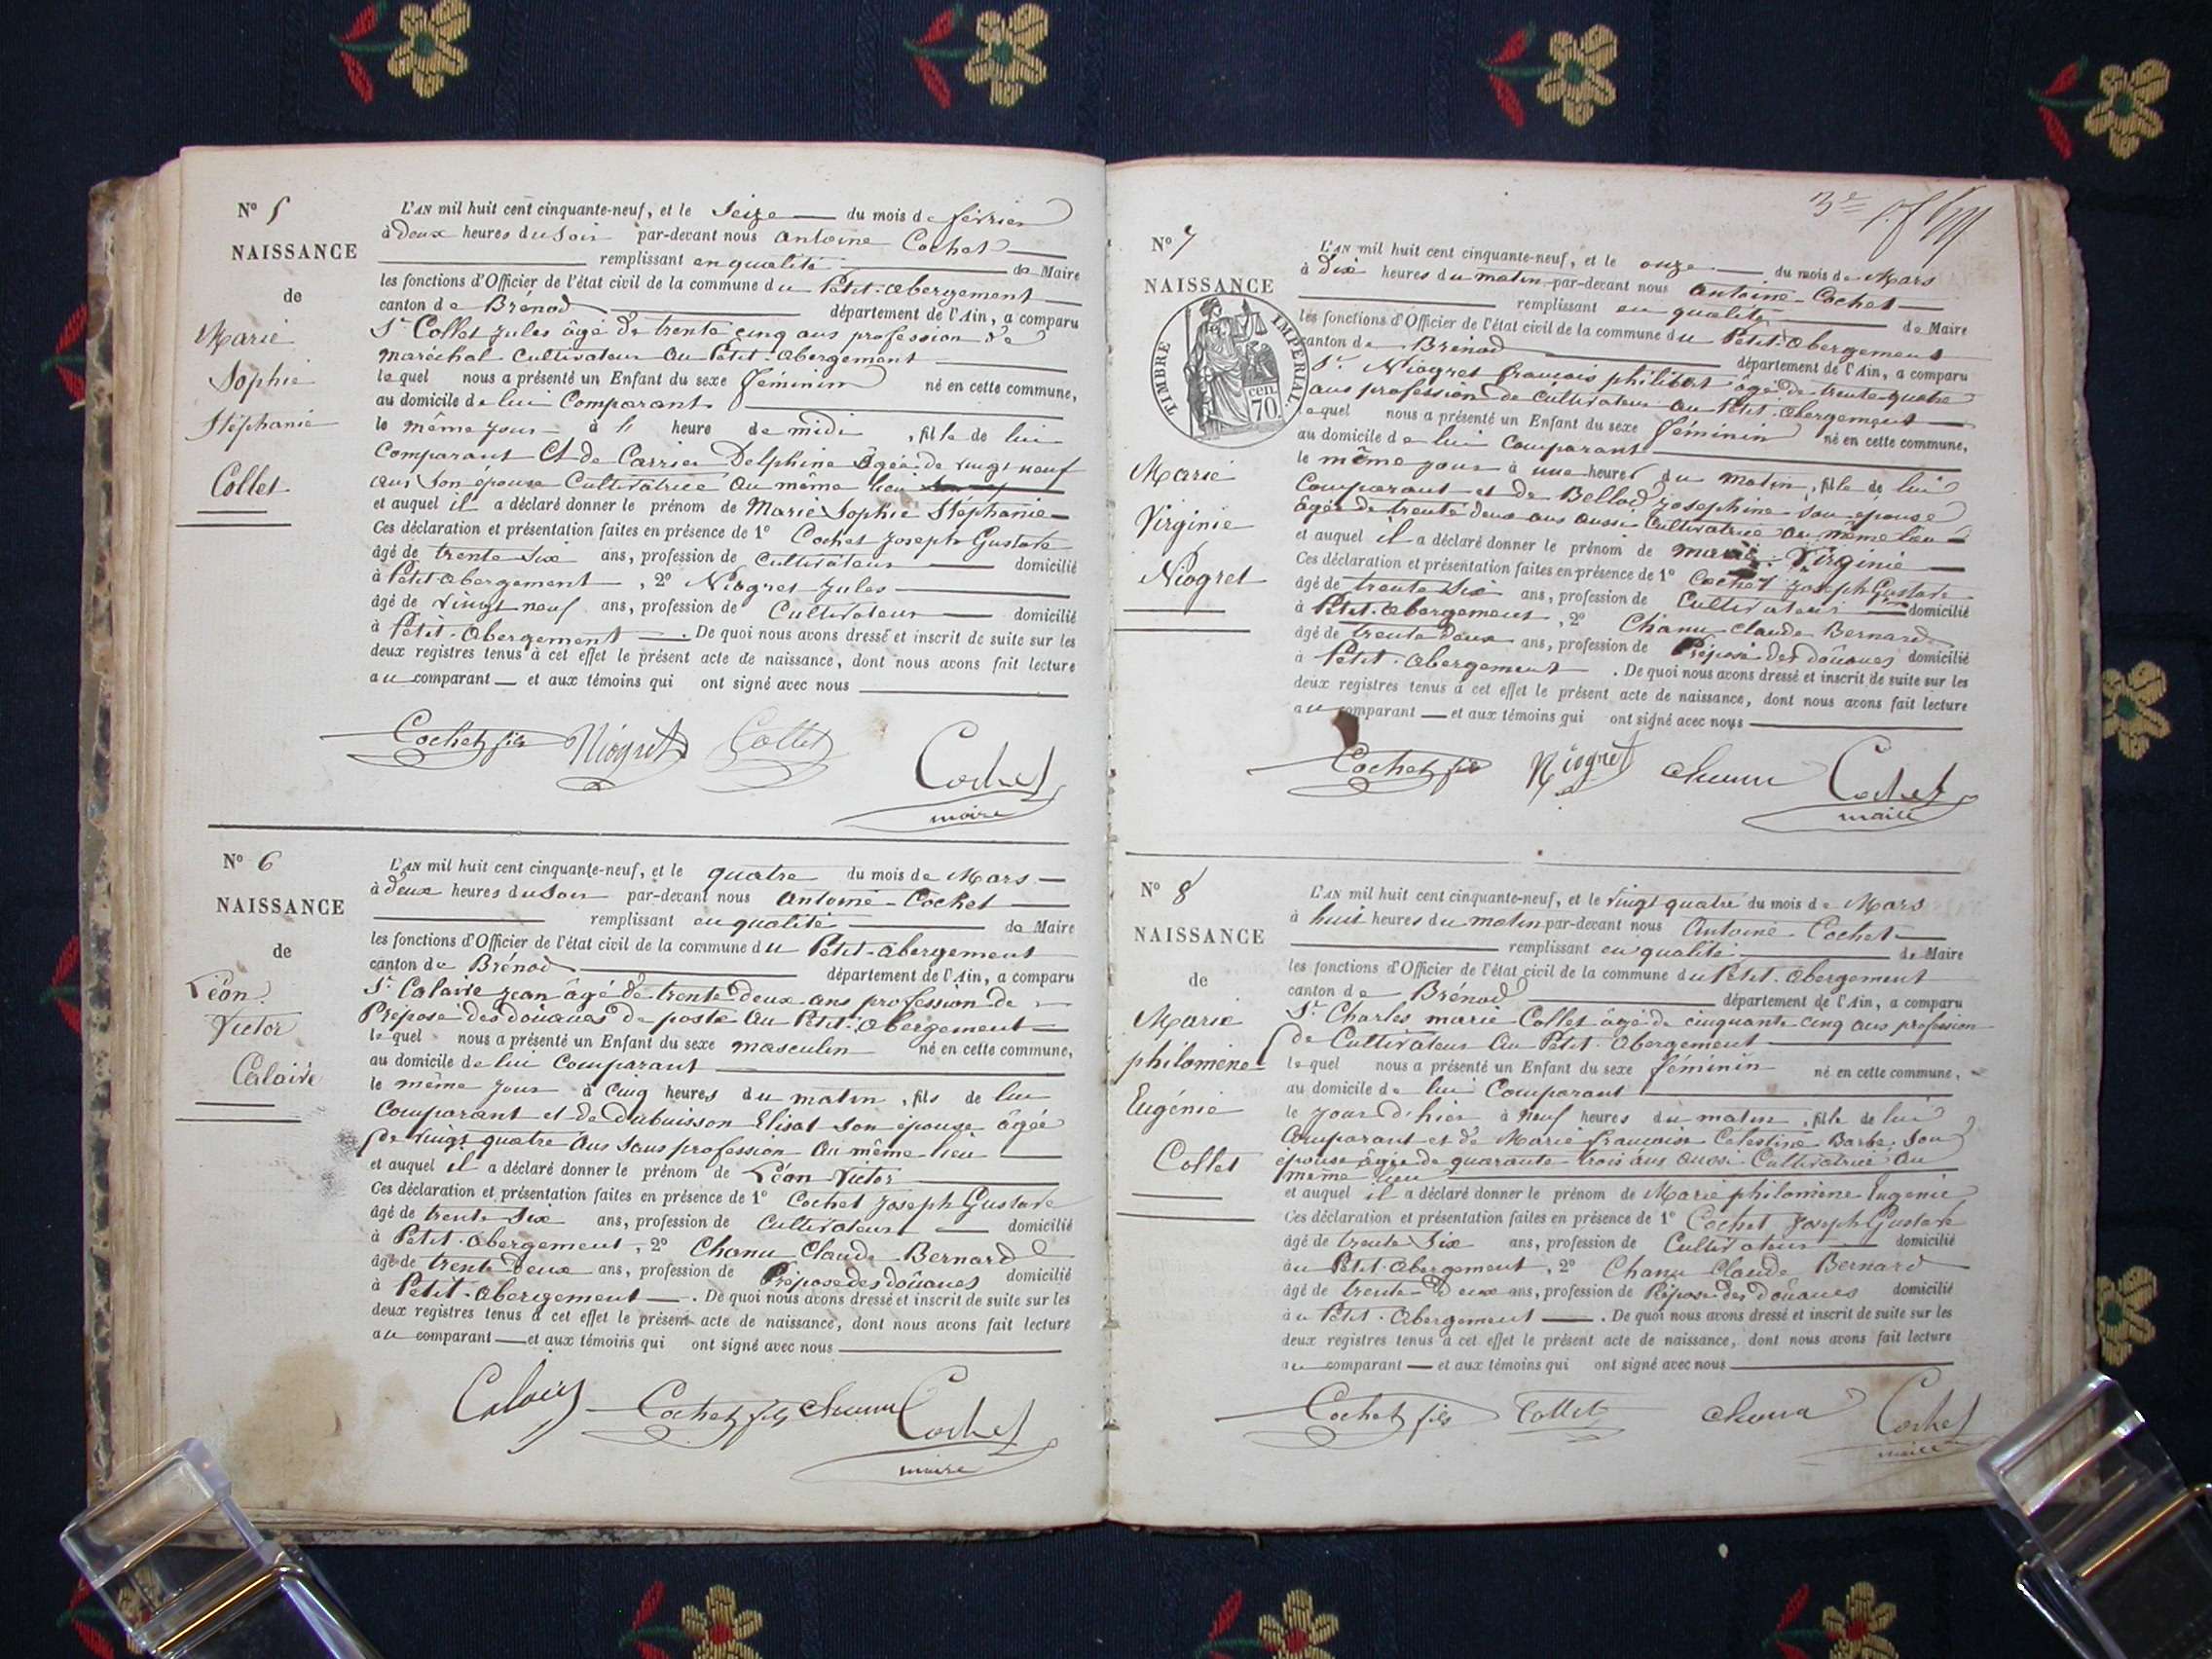 N° 5
NAISSANCE
de
Marie
Sophie
Stéphanie
Collet
L'AN mil huit cent cinquante-neuf, et le Seize du mois de février
à deux heures du Soir par-devant nous Antoine Cochet
remplissant en qualité de Maire
les fonctions d'Officier de l'état civil de la commune du Petit-Abergement
canton de Brénod département de l'Ain, a comparu
Sr Collet Jules âgé de trente cinq ans profession de
Maréchal Cultivateur au Petit-Abergement
le quel nous a présenté un Enfant du sexe féminin né en cette commune,
au domicile de lui Comparant
le même jour à 1 heure de midi, fille de lui
Comparant Et de Carrier Delphine âgée de vingt neuf
ans son épouse Cultivatrice au même lieu
et auquel il a déclaré donner le prénom de Marie Sophie Stéphanie
Ces déclaration et présentation faites en présence de 1° Cochet Joseph Gustave
âgé de trente Six ans, profession de Cultivateur domicilié
à Petit Abergement, 2° Niogret Jules
âgé de vingt neuf ans, profession de Cultivateur domicilié
à Petit-Abergement. De quoi nous avons dressé et inscrit de suite sur les
deux registres tenus à cet effet le présent acte de naissance, dont nous avons fait lecture
au comparant et aux témoins qui ont signé avec nous
Cochet fils Niogret Collet Cochet
maire
N° 6
NAISSANCE
de
Léon
Victor
Calaire
L'AN mil huit cent cinquante-neuf, et le quatre du mois de Mars
à deux heures du Soir par-devant nous Antoine Cochet
remplissant en qualité de Maire
les fonctions d'Officier de l'état civil de la commune du Petit-Abergement
canton de Brénod département de l'Ain, a comparu
Sr Calaire Jean âgé de trente deux ans profession de
Préposé des douanes de poste au Petit-Abergement
le quel nous a présenté un Enfant du sexe masculin né en cette commune,
au domicile de lui Comparant
le même jour à Cinq heures du matin, fils de lui
Comparant et de Dubuisson Elisat son épouse âgée
de vingt quatre ans sans profession au même lieu
et auquel il a déclaré donner le prénom de Léon Victor
Ces déclaration et présentation faites en présence de 1° Cochet Joseph Gustave
âgé de trente Six ans, profession de Cultivateur domicilié
à Petit-Abergement, 2° Chanu Claude Bernard
âgé de trente deux ans, profession de Préposé des douanes domicilié
à Petit-Abergement. De quoi nous avons dressé et inscrit de suite sur les
deux registres tenus à cet effet le présent acte de naissance, dont nous avons fait lecture
au comparant et aux témoins qui ont signé avec nous
Calaire Cochet fils Chanu Cochet
maire
3e
N° 7
NAISSANCE
TIMBRE IMPERIAL
70 cen.
Marie
Virginie
Niogret
L'AN mil huit cent cinquante-neuf, et le onze du mois de Mars
à dix heures du matin par-devant nous Antoine Cochet
remplissant en qualité de Maire
les fonctions d'Officier de l'état civil de la commune du Petit-Abergement
canton de Brénod département de l'Ain, a comparu
Sr Niogret francois philibert âgé de trente-quatre
ans profession de Cultivateur au Petit-Abergement
le quel nous a présenté un Enfant du sexe féminin né en cette commune,
au domicile de lui Comparant
le même jour à une heure du matin, fille de lui
Comparant et de Bellod Josephine son épouse
âgée de trente deux ans aussi Cultivatrice au même lieu
et auquel il a déclaré donner le prénom de Marie Virginie
Ces déclaration et présentation faites en présence de 1° Cochet Joseph Gustave
âgé de trente Six ans, profession de Cultivateur domicilié
à Petit-Abergement, 2° Chanu Claude Bernard
âgé de trente deux ans, profession de Préposé des douanes domicilié
à Petit-Abergement. De quoi nous avons dressé et inscrit de suite sur les
deux registres tenus à cet effet le présent acte de naissance, dont nous avons fait lecture
au comparant et aux témoins qui ont signé avec nous
Cochet fils Niogret Chanu Cochet
maire
N° 8
NAISSANCE
de
Marie
philomène
Eugénie
Collet
L'AN mil huit cent cinquante-neuf, et le vingt quatre du mois de Mars
à huit heures du matin par-devant nous Antoine Cochet
remplissant en qualité de Maire
les fonctions d'Officier de l'état civil de la commune du Petit-Abergement
canton de Brénod département de l'Ain, a comparu
Sr Charles marie Collet âgé de cinquante cinq ans profession
de Cultivateur au Petit-Abergement
le quel nous a présenté un Enfant du sexe féminin né en cette commune,
au domicile de lui Comparant
le jour d'hier à neuf heures du matin, fille de lui
Comparant et de Marie francoise Célestine Barbe son
épouse âgée de quarante trois ans aussi Cultivatrice au
même lieu
et auquel il a déclaré donner le prénom de Marie philomène Eugénie
Ces déclaration et présentation faites en présence de 1° Cochet Joseph Gustave
âgé de trente Six ans, profession de Cultivateur domicilié
au Petit-Abergement, 2° Chanu Claude Bernard
âgé de trente-Deux ans, profession de Préposé des douanes domicilié
au Petit-Abergement. De quoi nous avons dressé et inscrit de suite sur les
deux registres tenus à cet effet le présent acte de naissance, dont nous avons fait lecture
au comparant et aux témoins qui ont signé avec nous
Cochet fils Collet Chanu Cochet
maire